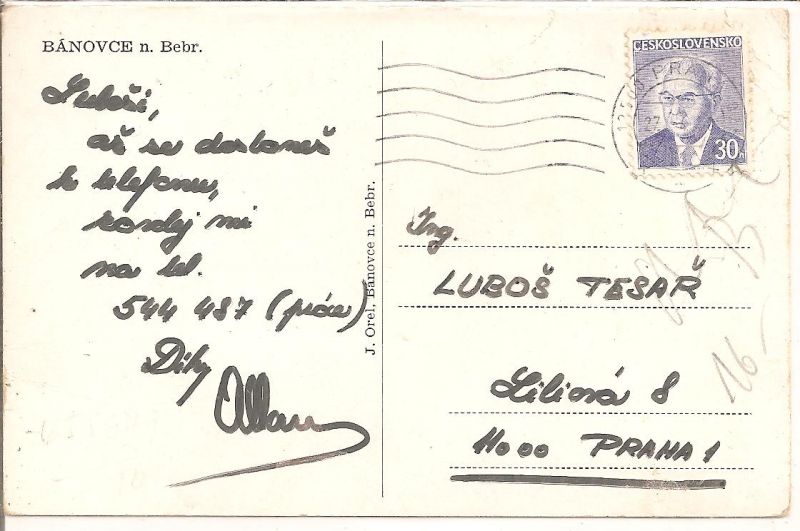 BÁNOVCE n. Bebr.
Luboši,
až se dostaneš
k telefonu,
zavolej mi
na tel.
544 487 (práce)
Díky
Allan
J. Orel. Bánovce n. Bebr.
ČESKOSLOVENSKO
30h
PRAHA
Ing.
LUBOŠ TESAŘ
Liliová 8
11000 PRAHA 1
16,-